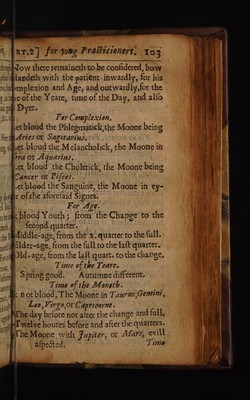 RT.2] for yong Practicioners. 103
Now there remaineth to be considered, how
standeth with the patient inwardly, for his
omplexion and Age, and outwardly, for the
me of the Yeare, time of the Day, and also
Dyet.
For Complexion.
Let bloud the Phlegmatick, the Moone being
Aries or Sagitarius.
Let bloud the Melancholick, the Moone in
bra or Aquarius.
Let bloud the Cholerick, the Moone being
Cancer or Pisces.
Let bloud the Sanguine, the Moone in ey-
er of the aforesaid Signes.
For Age.
blood Youth; from the Change to the
second quarter.
Middle-age, from the 2. quarter to the full.
Elder-age, from the full to the last quarter.
Old-age, from the last quart. to the change.
Time of the Yeare.
Spring good. Autumne different.
Time of the Moneth.
not blood, The Moone in Taurus, Gemini,
Leo, Virgo, or Capricorne.
The day before nor after the change and full,
Twelve houres before and after the quarters.
The Moone with Jupiter, or Mars, evill
aspected. Time